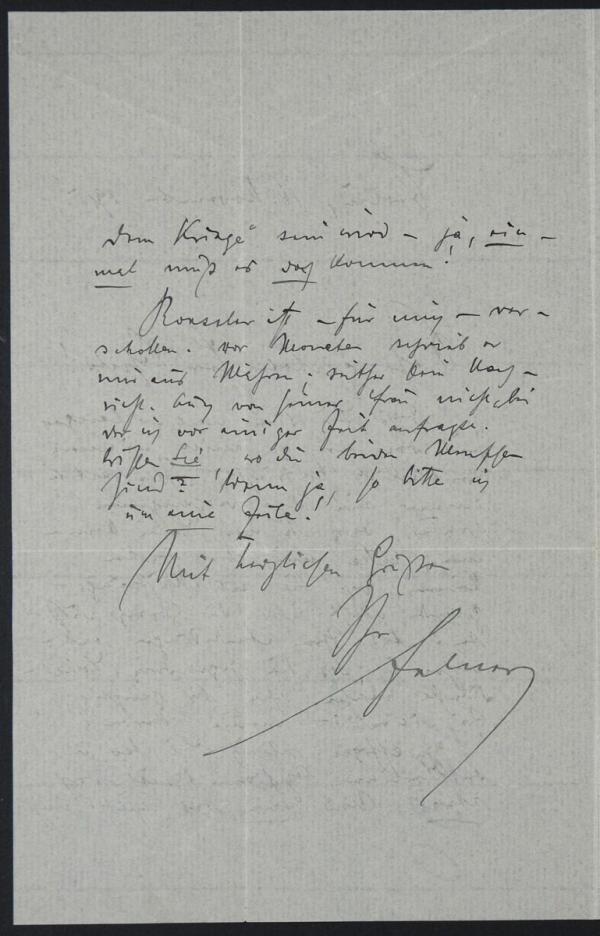 dem Kriege" sein wird – ja, ein-
mal muß es doch kommen!
ist – für mich – ver-
schollen. vor Monaten schrieb er
mir aus Mähren; seither kein Nach-
richt. Auch von seiner Frau nicht, bei
der ich vor einiger Zeit anfragte.
Wissen Sie, wo die beiden Menschen
sind? Wenn ja, so bitte ich
um eine Zeile!
Mit herzlichen Grüßen
Ihr